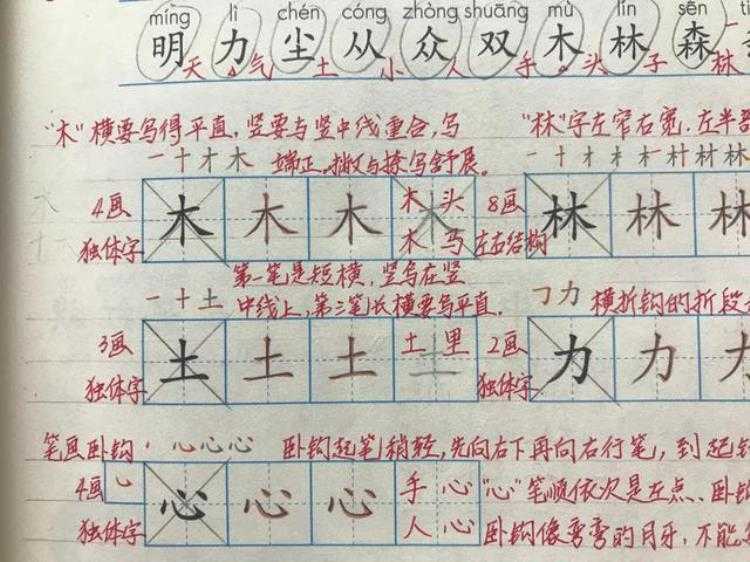 míng lì chén cóng zhòng shuāng mù lín sēn
明 力 尘 从 众 双 木 林 森
天 气 土 小 人 手 头 子 林
"木"横要写得平直,竖要与竖中线重合,写 "林"字左窄右宽.左半部
一 十 才 木 端正.撇与捺写舒展。 一 十 才 木 木 村 材 林
4画 木 木 木 木 头 8画 林 林 林
独体字 木 马 左右结构
第一笔是短横,竖写在竖
一 十 土 中线上,第三笔长横要写平直. 𠃌 力 横折钩的折段
3画 土 土 土 土 里 2画 力 力 力
独体字 独体字
笔画卧钩 丶 心 心 心 卧钩起笔稍轻,先向右下再向右行笔,到起钩
4画 ㇃ 心 心 心 手 心 "心"笔顺依次是左点、卧钩
独体字 人 心 卧钩像弯弯的月牙,不能